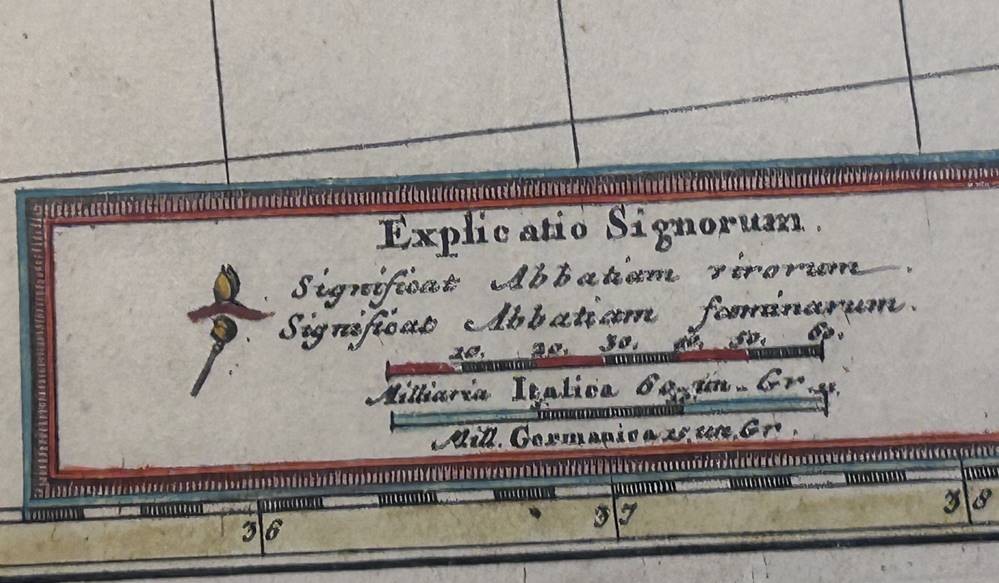 Explicatio Signorum.
Significat Abbatiam virorum.
Significat Abbatiam fœminarum.
10. 20. 30. 40. 50. 60.
Milliaria Italica 60. un. Gr.
Mill. Germanica 15 un. Gr.
36 37 38